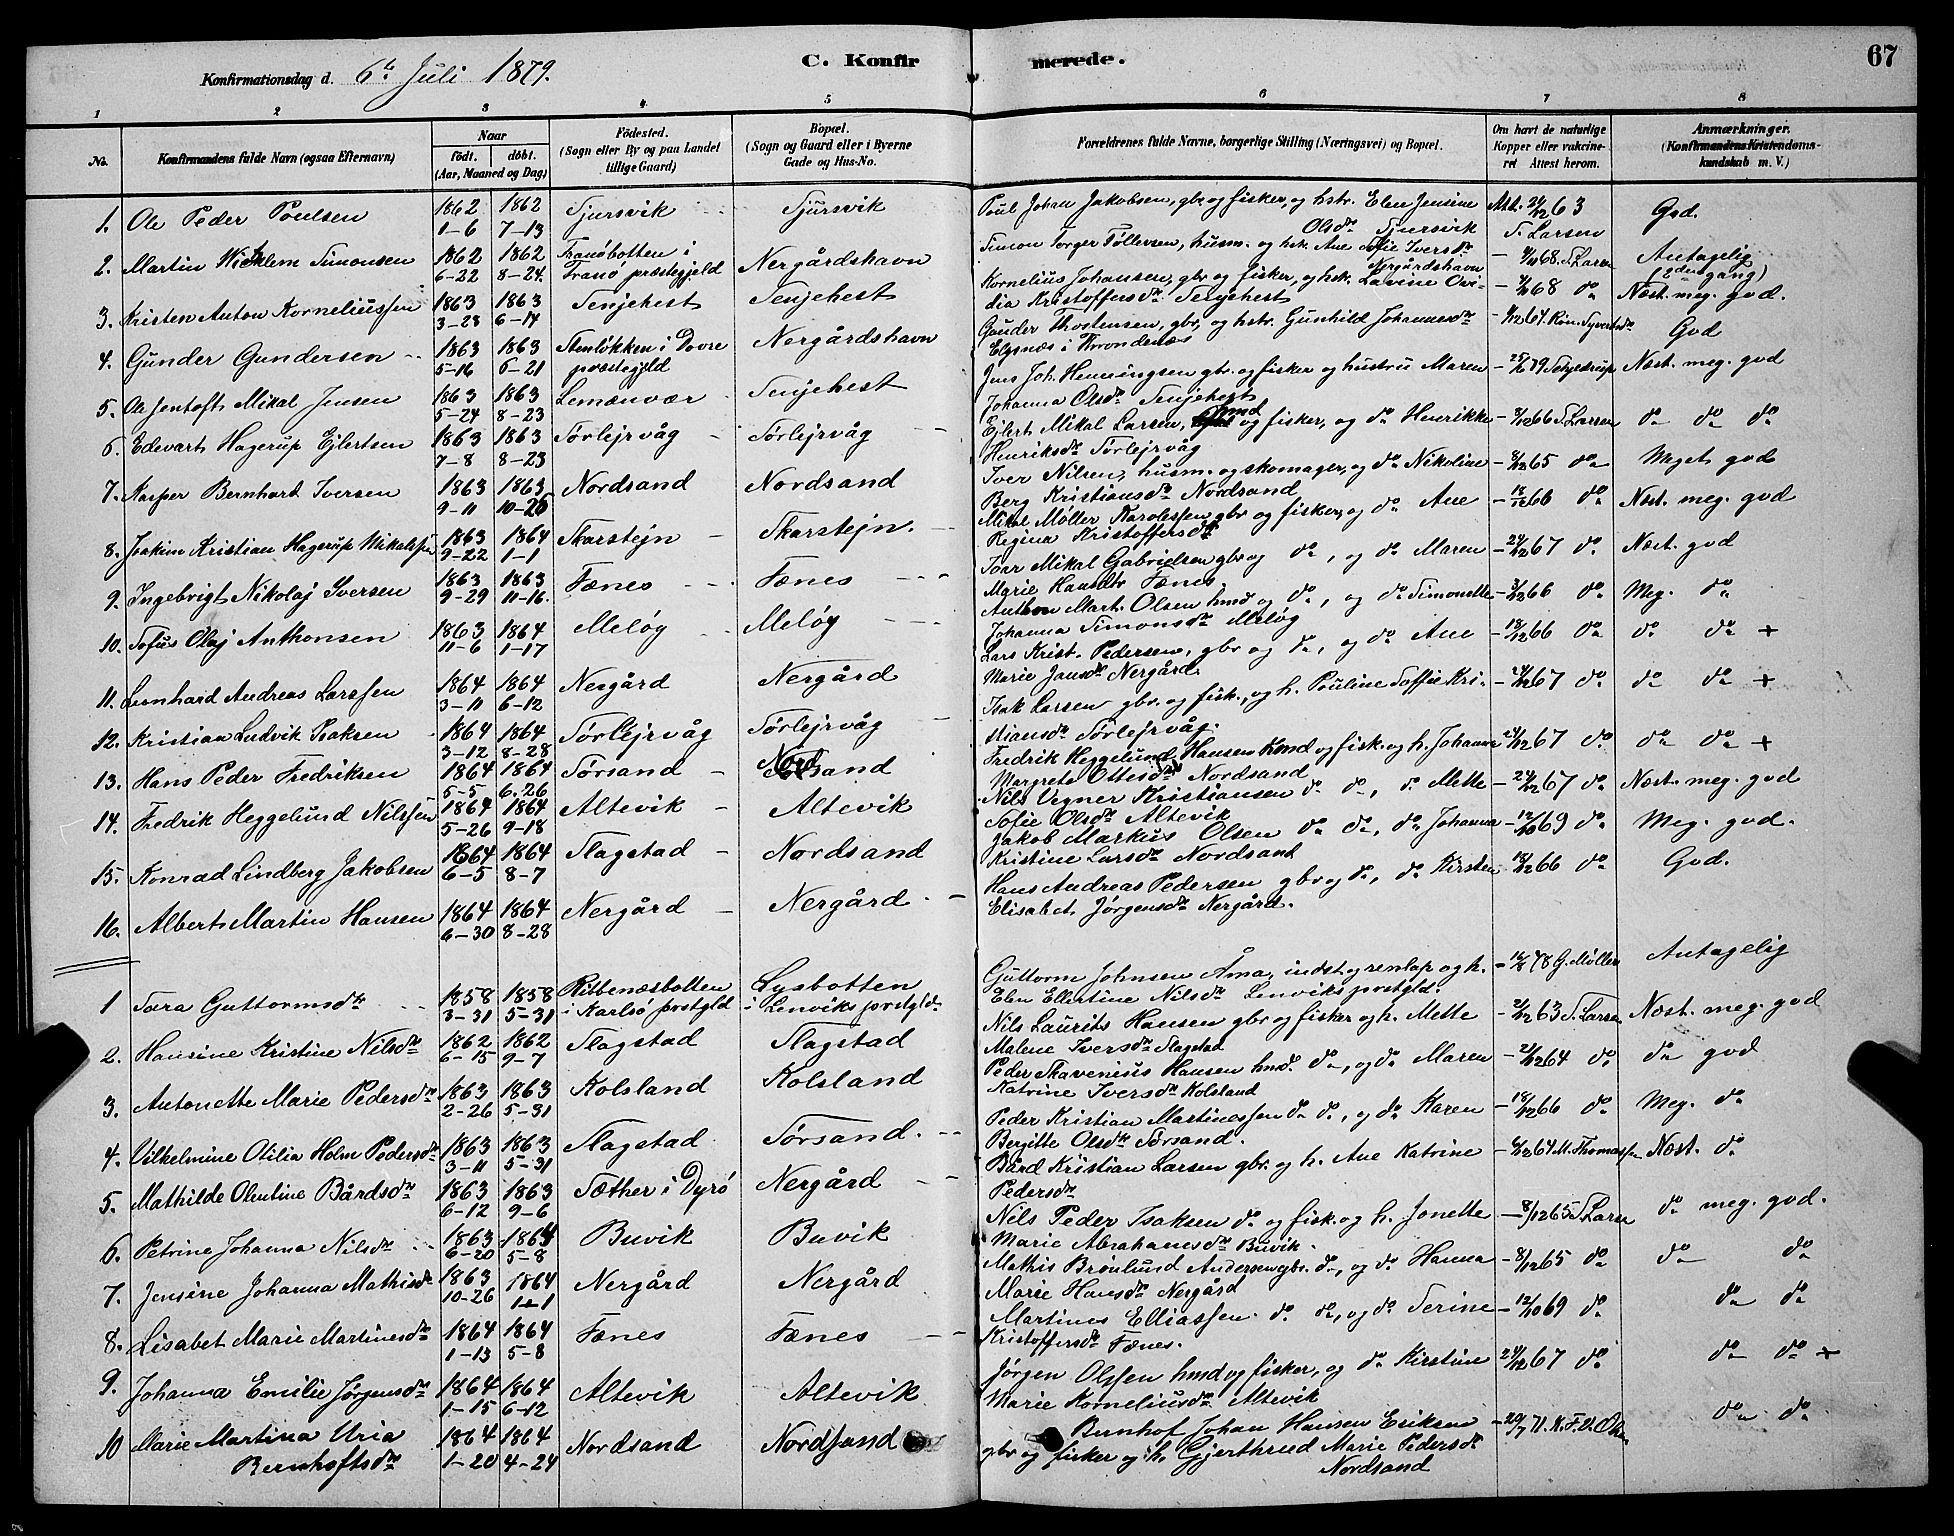 Konfirmationsdag d. 6te Juli 1879.
C. Konfirmerede.
67
1 2 3 4 5 6 7 8
No.
Konfirmandens fulde Navn (ogsaa Efternavn)
Naar
födt. döbt.
(Aar, Maaned og Dag)
Födested.
(Sogn eller By og paa Landet
tillige Gaard)
Bopæl.
(Sogn og Gaard eller i Byerne
Gade og Hus-No.
Forældrenes fulde Navne, borgerlige Stilling (Næringsvei) og Bopæl.
Om havt de naturlige
Kopper eller vakcine-
ret Attest herom.
Anmærkninger.
(Konfirmandens Kristendoms-
kundskab m. V.)
1. Ole Peder Poulsen 1862 1-6 1862 7-13 Sjursvik Sjursvik Poul Johan Jakobsen, gbr og fisker, og hstr. Elen Jensine Olsdr Sjursvik Att. 24/12 63 S. Larsen God.
2. Martin Wichlem Simonsen 1862 6-22 1862 8-24 Tranöbotten i Tranö præstegjeld Nergårdshavn Simon Torger Tøllevsen, husm. og hst. Ane Sofie Iversdr Nergårdshavn 68. S. Larsen Antagelig (2den gang)
3. Kristen Anton Korneliussen 1863 3-23 1863 6-14 Senjehest Senjehest Kornelius Johansen, gbr og fisker, og hst. Lavine Ovidia Kristoffersdr Senjehest 68 do Næst. meg. god.
4. Gunder Gundersen 1863 5-16 1863 6-21 Stenløkken i Dovre præstegjeld Nergårdshavn Gunder Thostensen, gbr, og hstr. Gunhild Johannesdr Elgsnæs i Trondenæs 64. God
5. Ole Jentoft Mikal Jensen 1863 5-24 1863 8-23 Lemænvær Senjehest Jens Joh. Henningsen gbr. og fisker og hustru Maren Johanna Olsdr Senjehest 79 Næst. meg. god
6. Edevart Hagerup Ejlertsen 1863 7-8 1863 8-23 Sørlejrvåg Sørlejrvåg Ejlert Mikal Larsen, hmd og fisker, og do Henrikke Henriksdr Sørlejrvåg 8/12 66 S. Larsen do do do
7. Kasper Bernhard Iversen 1863 9-11 1863 10-25 Nordsand Nordsand Iver Nilsen, husm. og skomager, og do Nikoline Berg Kristiansdr Nordsand 8/12 65 do Meget god
8. Joakim Kristian Hagerup Mikalssen 1863 9-22 1864 1-1 Skarstejn Skarstejn Mikal Møller Karolessen gbr og fisker, og do Ane Regina Kristoffersdr 18/12 66 do Næst. meg. god
9. Ingebrigt Nikolaj Iversen 1863 9-29 1863 11-16. Fænes Fænes Ivar Mikal Gabrielsen gbr og do, og do Maren Marie Hansdtr Fænes 24/12 67 do Næst. god
10. Sofus Olaj Anthonsen 1863 11-6 1864 1-17 Meløy Meløy Anthon Mart. Olsen hmd og do, og do Simonette Johanna Simonsdr Meløy 3/12 66 do Meg. do
11. Leonhard Andreas Larssen 1864 3-11 1864 6-12 Nergård Nergård Lars Krist. Pedersen, gbr og do, og do Ane Marie Jansdr Nergård 18/12 66 do do do +
12. Kristian Ludvik Isaksen 1864 3-12 1864 8-28 Sørlejrvåg Sørlejrvåg Isak Larsen gbr. og fisk., og h. Pouline Soffie Kristiansdr Sørlejrvåg. 24/12 67 do do do +
13. Hans Peder Fredriksen 1864 5-5 1864 6.26 Sørsand Nordsand Fredrik Heggelund Hansen hmd og fisk. og h. Johanna Margrete Ottesdr Nordsand 24/12 67 do do do +
14. Fredrik Heggelund Nilssen 1864 5-26 1864 9-18 Altevik Altevik Nils Vegner Kristiansen do do, do Mette Sofie Olsdr Altevik 24/12 67 do Næst. meg. god
15. Konrad Lindberg Jakobsen 1864 6-5 1864 8-7 Flagstad Nordsand Jakob Markus Olsen do do, do Johanna Kristine Larsdr Nordsand 12/10 69 do Meg. god.
16. Albert Martin Hansen 1864 6-30 1864 8-28 Nergård Nergård Hans Andreas Pedersen gbr og do, do Kirsten Elisabet Jørgensdr Nergård. 18/12 66 do God.
1 Sara Guttormsdr 1858 3-31 1858 5-31 Rittenæsbotten i Karlsö prstgld Lysbotten i Lenviks prstgld. Guttorm Johnsen Åma, indst og renlap og h. Elen Ellertine Nilsdr Lenviks prstgld. 78 G. Møller Antagelig
2. Hansine Kristine Nilsdr 1862 6-15 1862 9-7 Flagstad Flagstad Nils Laurits Hansen gbr og fisker og h. Mette Malene Iversdr Flagstad 63 S. Larsen Næst. meg. god
3. Antonette Marie Pedersdr 1863 2-26 1863 5-31 Kolsland Kolsland Peder Skavenius Hansen hmd. do, og do Maren Katrine Iversdr Kolsland 64 do do god
4. Vilhelmine Otilia Holm Pedersdr 1863 3-11 1863 5-31 Flagstad Sørsand. Peder Kristian Martinessen do do, og do Karen Bergitte Olsdr Sørsand. 18/12 66 do Meg. do
5. Mathilde Olutine Bårdsdr 1863 6-12 1863 9-6 Sæther i Dyrö Nergård Bård Kristian Larsen gbr. og h. Ane Katrine Pedersdr 64 M. Thomassen Næst. do
6. Petrine Johanna Nilsdr 1863 6-20 1864 5-8 Buvik Buvik Nils Peder Isaksen do og fisk. og h. Jonette Marie Abrahamsdr Buvik 8/12 65 S. Larsen do meg. god.
7. Jensine Johanna Mathisdr 1863 10-26 1864 1-1 Nergård Nergård Mathis Bronlund Andersen gbr. do, og do Hanna Marie Hansdr Nergård 8/12 65 do do do
8. Lisabet Marie Martinesdr 1864 1-13 1864 5-8 Fænes Fænes Martines Elliassen do do, og do Serine Kristoffersdr Fænes. 12/10 69 do do do
9. Johanna Emilie Jørgensdr 1864 1-15 1864 6-12 Altevik Altevik Jørgen Olssen hmd og fisker, og do Kirstine Marie Korneliusdr Altevik 24/12 67 do do do +
10 Marie Martina Uria Bernhoftsdr 1864 1-20 1864 4-24 Nordsand Nordsand Bernhof Johan Hansen Eriksen gbr og fisker og h. Gjerthrud Marie Pedersdr Nordsand 20/7 71. do do